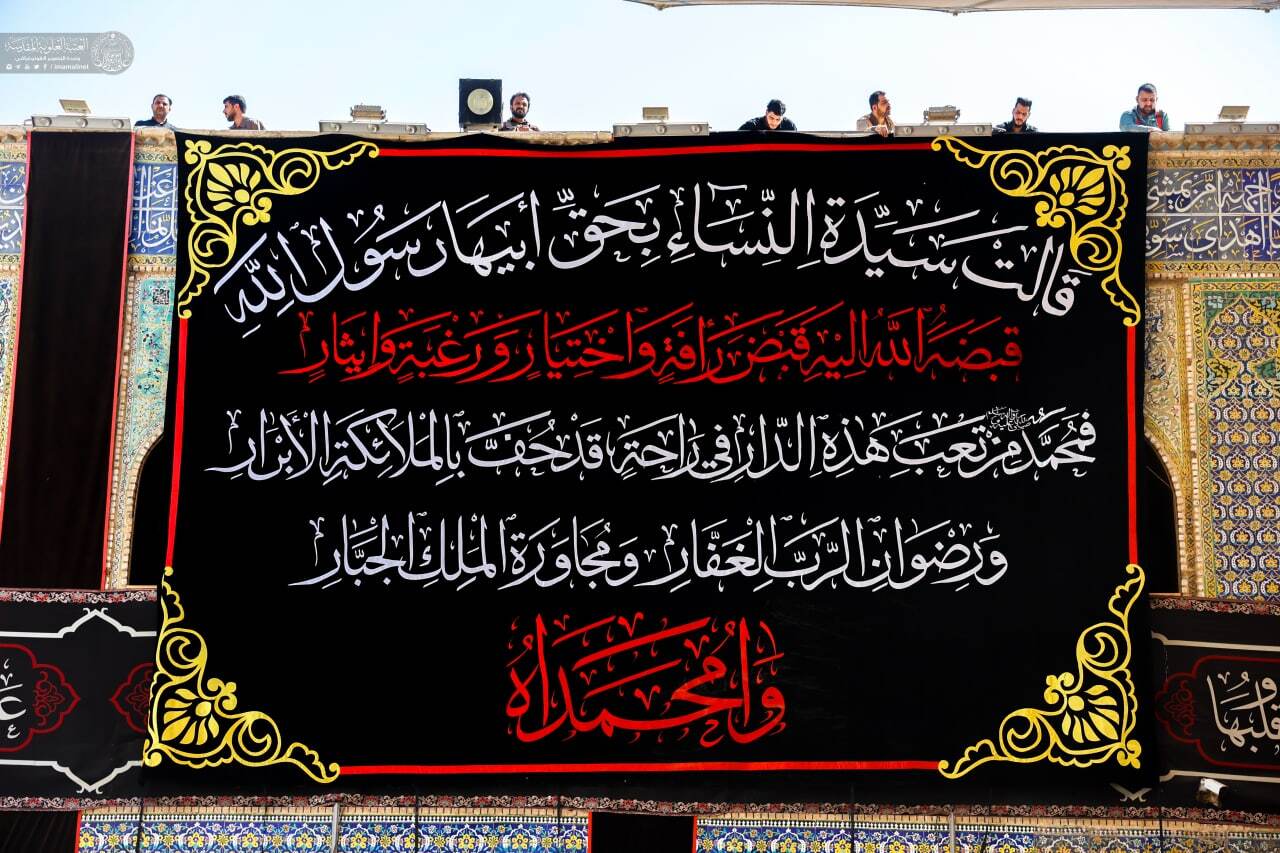 العتبة العلوية المقدسة
/ imamalinet
قَالَتْ سَيِّدَةُ النِّسَاءِ بِحَقِّ أَبِيهَا رَسُولِ اللهِ
قَبَضَهُ اللهُ اِلَيْهِ قَبْضَ رَأفَةٍ وَاخْتِيَارٍ وَرَغْبَةٍ وَاِيثَارٍ
فَمُحَمَّدٌ مِنْ تَعَبِ هَذِهِ الدَّارِ فِي رَاحَةٍ قَدْ حُفَّ بِالْمَلَائِكَةِ الْأَبْرَارِ
وَرِضْوَانِ الرَّبِّ الْغَفَّارِ وَمُجَاوَرَةِ الْمَلِكِ الْجَبَّارِ
وَامُحَمَّدَاهُ